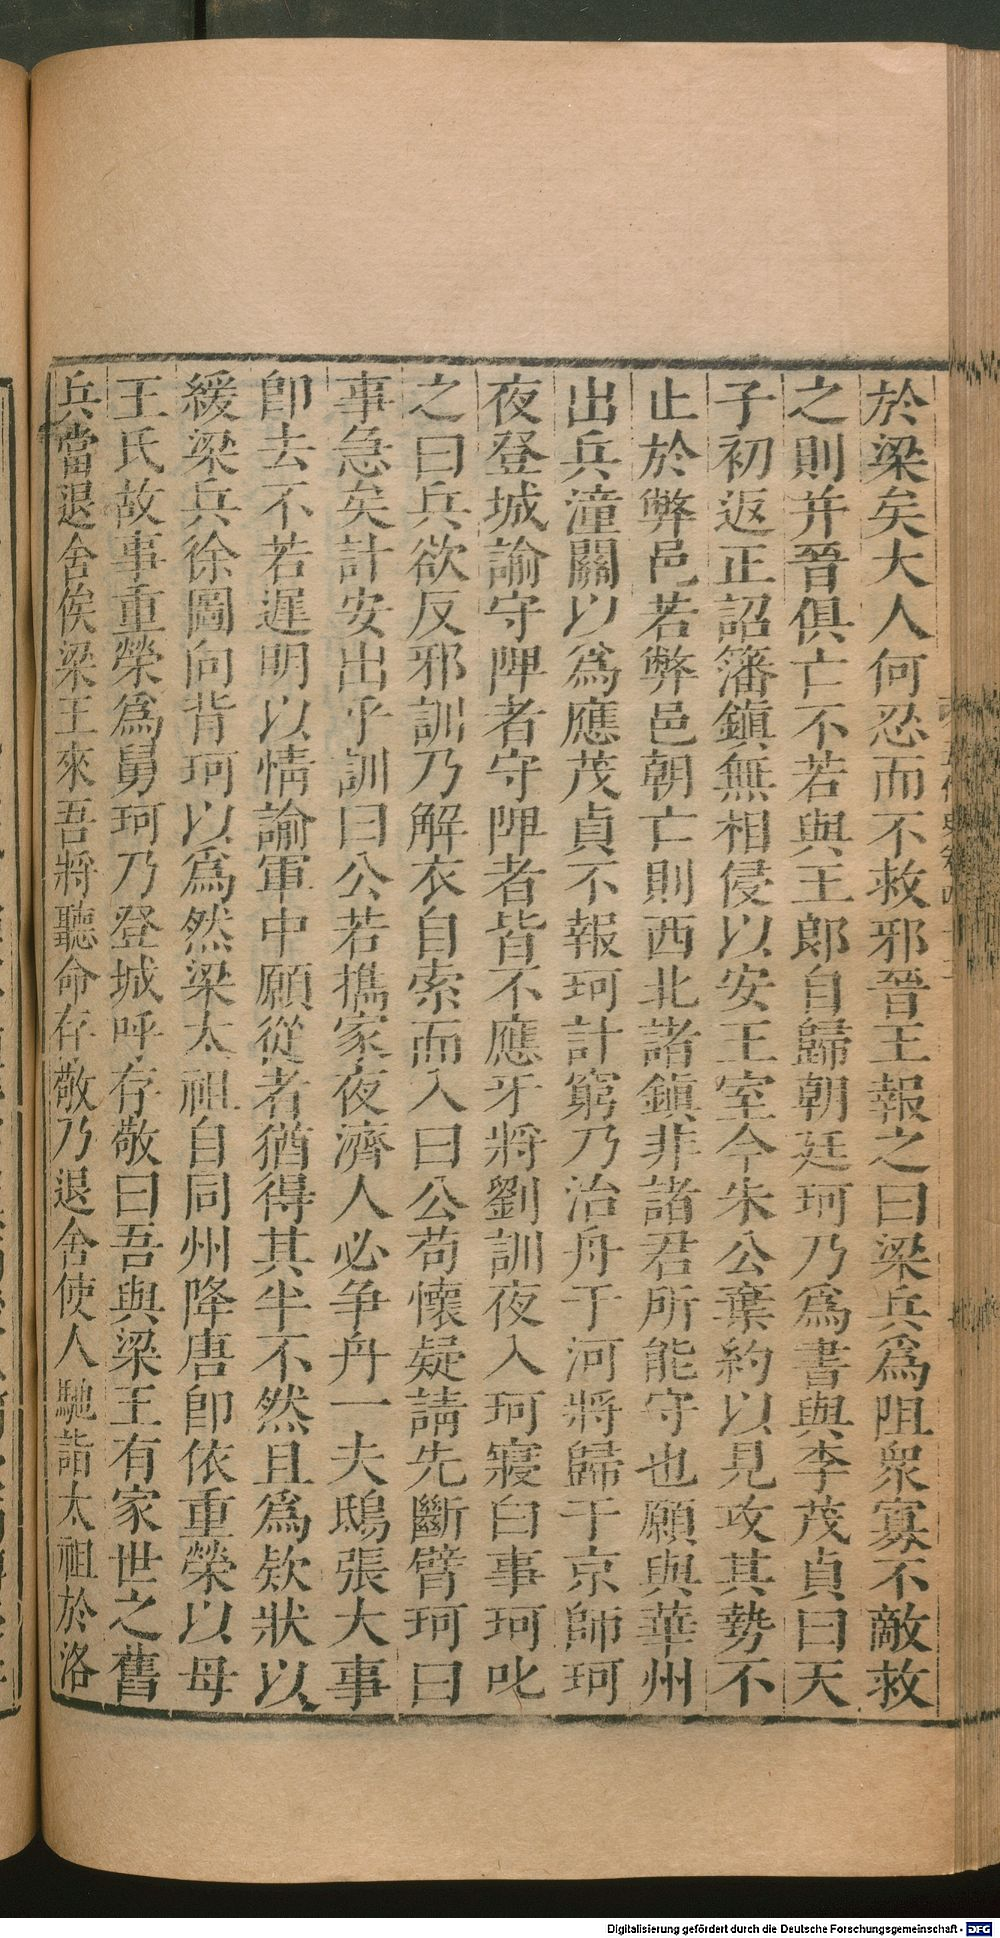 於梁矣大人何忍而不救邪晉王報之曰梁兵爲阻衆寡不敵救
之則并晉俱亡不若與王郎自歸朝廷珂乃爲書與李茂貞曰天
子初返正詔籓鎮無相侵以安王室今朱公棄約以見攻其勢不
止於弊邑若弊邑朝亡則西北諸鎮非諸君所能守也願與華州
出兵潼關以爲應茂貞不報珂計窮乃治舟于河將歸于京師珂
夜登城諭守陴者守陴者皆不應牙將劉訓夜入珂寢白事珂叱
之曰兵欲反邪訓乃解衣自索而入曰公苟懷疑請先斷臂珂曰
事急矣計安出乎訓曰公若擕家夜濟人必争舟一夫鴟張大事
即去不若遲明以情諭軍中願從者猶得其半不然且爲欵狀以
緩梁兵徐圖向背珂以爲然梁太祖自同州降唐即依重榮以母
王氏故事重榮爲舅珂乃登城呼存敬曰吾與梁王有家世之舊
兵當退舍俟梁王來吾將聽命存敬乃退舍使人馳詣太祖於洛
Digitalisierung gefördert durch die Deutsche Forschungsgemeinschaft - DFG